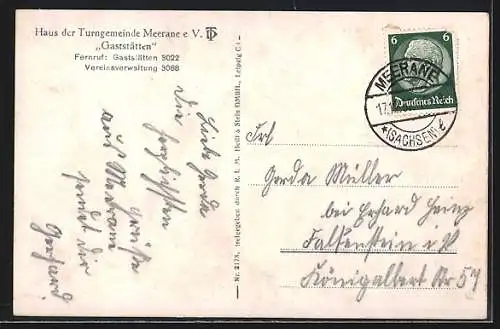 Haus der Turngemeinde Meerane e V.
„Gaststätten"
Fernruf: Gaststätten 3022
Vereinsverwaltung 3088
Liebe Gerda
Die
herzlichsten
Grüße
aus Meerane
sendet Dir
Gerhard.
Nr. 2178,
G. m. b. H., Leipzig C 1
6 6
Deutsches Reich
MEERANE
17.1
*(SACHSEN) e
Frl
Gerda Müller
bei Erhard Heinz
Falkenstein i. V.
Königalbert Str 57